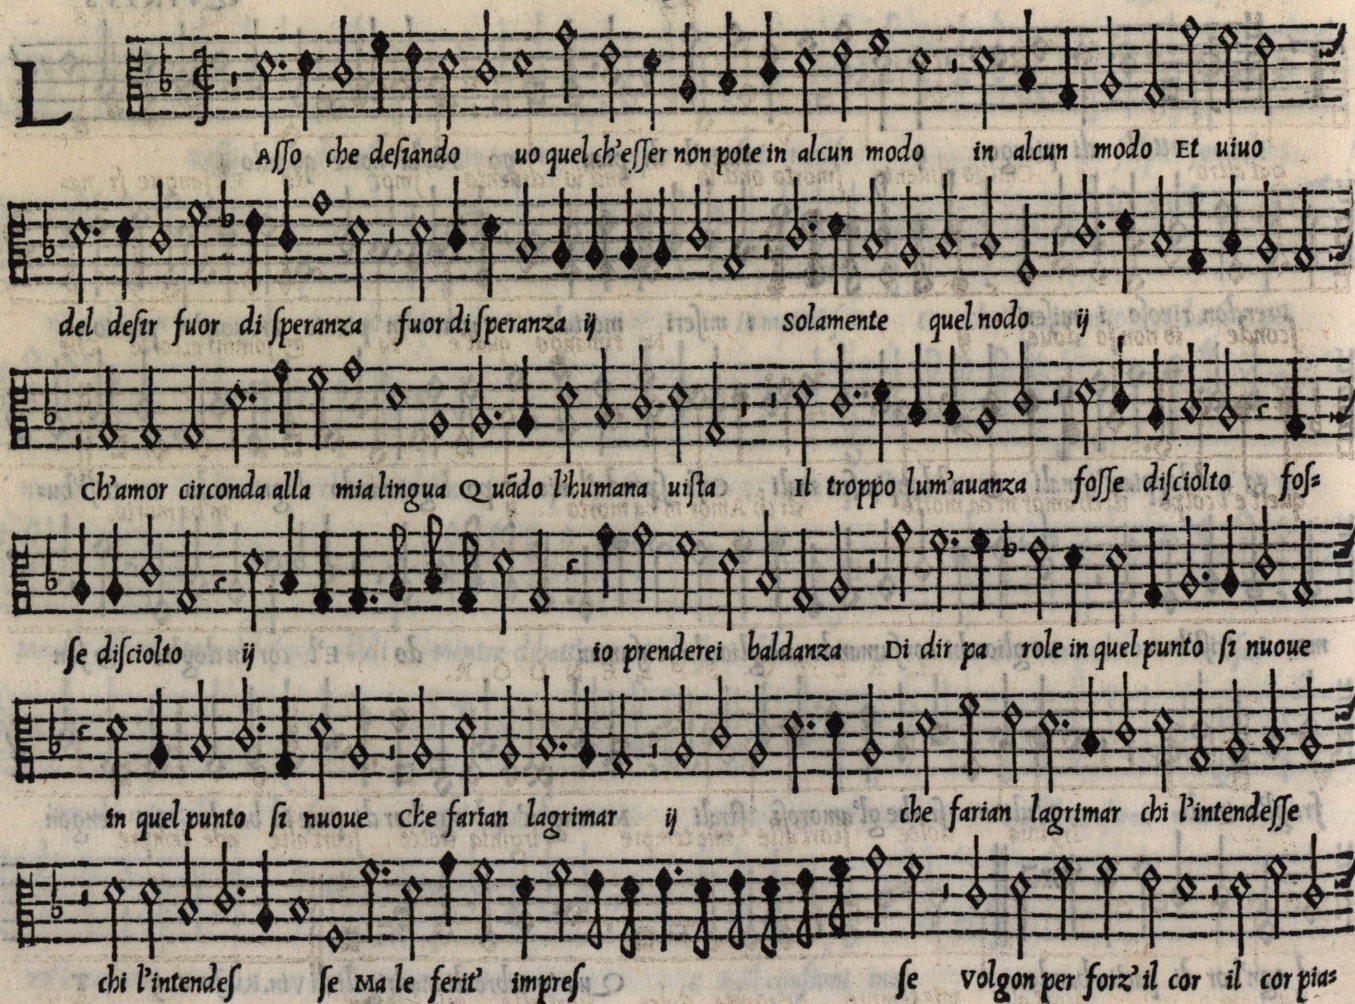 LAſſo che deſiando uo quel ch'eſſer non pote in alcun modo in alcun modo Et uiuo
del deſir fuor di ſperanza fuor di ſperanza ij Solamente quel nodo ij
Ch'amor circonda alla mia lingua Quādo l'humana uiſta Il troppo lum'auanza foſſe diſciolto foſ=
ſe diſciolto ij io prenderei baldanza Di dir pa role in quel punto ſi nuoue
in quel punto ſi nuoue Che farian lagrimar ij che farian lagrimar chi l'intendeſſe
chi l'intendeſ ſe Ma le ferit' impreſ ſe Volgon per forz' il cor il cor pia=